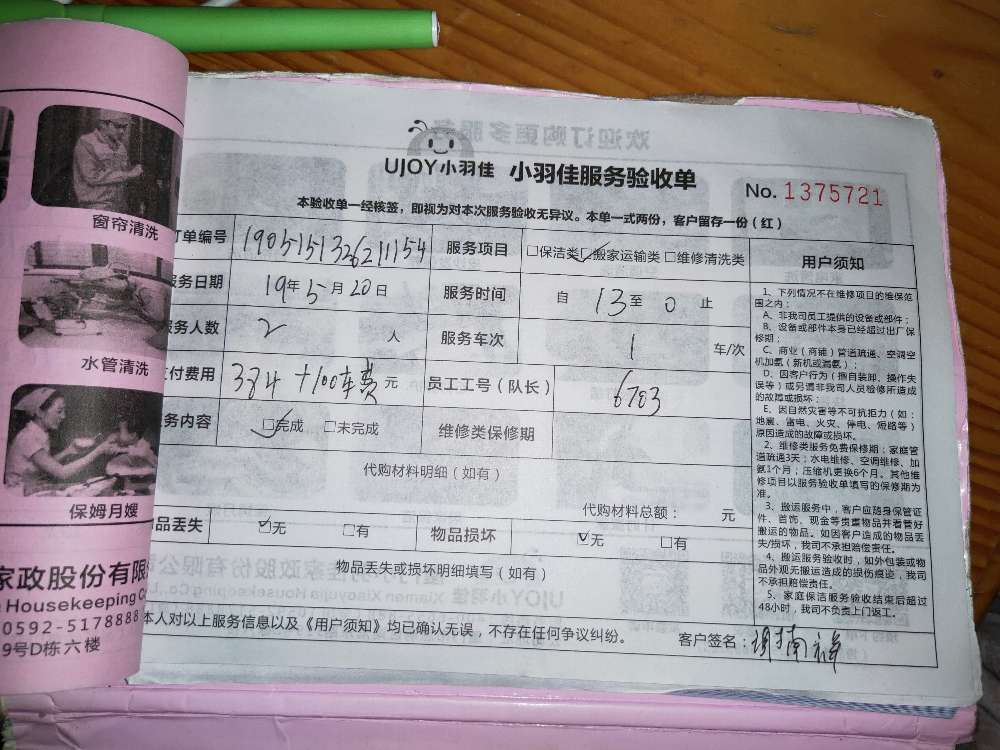 窗帘清洗
水管清洗
保姆月嫂
家政股份有限
Housekeeping
0592-5178888
9号D栋六楼
UJOY小羽佳 小羽佳服务验收单
No. 1375721
本验收单一经核签，即视为对本次服务验收无异议。本单一式两份，客户留存一份（红）
订单编号 服务项目 □保洁类 □搬家运输类 □维修清洗类
服务日期 19年5月20日 服务时间 自 13 至 0 止
服务人数 2 人 服务车次 1 车/次
付费用 384 +100车费 元 员工工号（队长） 6783
务内容 □完成 □未完成 维修类保修期
代购材料明细（如有）
代购材料总额： 元
品丢失 □无 □有 物品损坏 □无 □有
物品丢失或损坏明细填写（如有）
本人对以上服务信息以及《用户须知》均已确认无误，不存在任何争议纠纷。 客户签名：
用户须知
1、下列情况不在维修项目的维保范
围之内：
A、非我司员工提供的设备或部件；
B、设备或部件本身已经超过出厂保
修期；
C、商业（商铺）管道疏通、空调空
机加氨（新机或漏氨）；
D、因客户行为（擅自装卸、操作失
误等）或另请非我司人员检修所造成
的故障或损坏；
E、因自然灾害等不可抗拒力（如：
地震、雷电、火灾、停电、短路等）
原因造成的故障或损坏。
2、维修类服务免费保修期：家庭管
道疏通3天；水电维修、空调维修、加
氨1个月；压缩机更换6个月。其他维
修项目以服务验收单填写的保修期为
准。
3、搬运服务中，客户应随身保管证
件、首饰、现金等贵重物品并看管好
搬运的物品。如因客户造成的物品丢
失/损坏，我司不承担赔偿责任。
4、搬运服务验收时，如外包装或物
品外观无搬运造成的损伤痕迹，我司
不承担赔偿责任。
5、家庭保洁服务验收结束后超过
48小时，我司不负责上门返工。